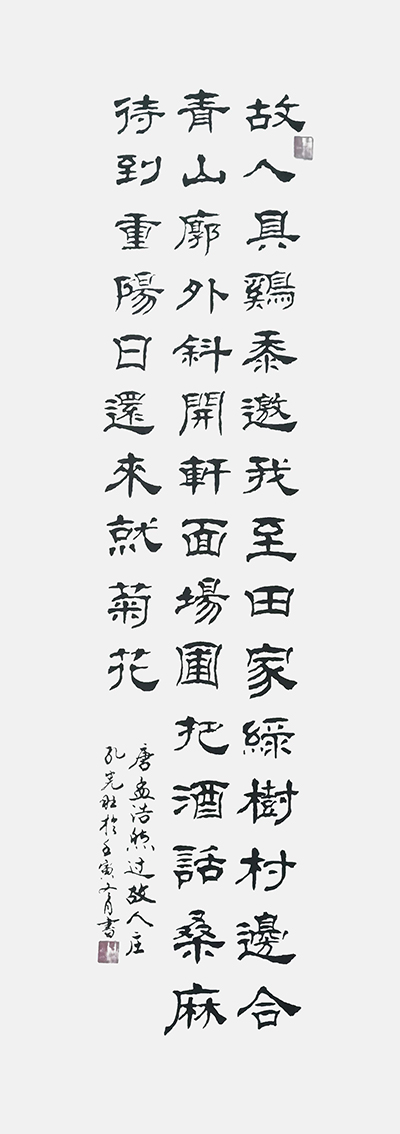 故人具鷄黍邀我至田家綠樹村邊合
青山廓外斜開軒面場圃把酒話桑麻
待到重陽日還來就菊花
唐孟浩然过故人庄
孔光 於壬寅 月書